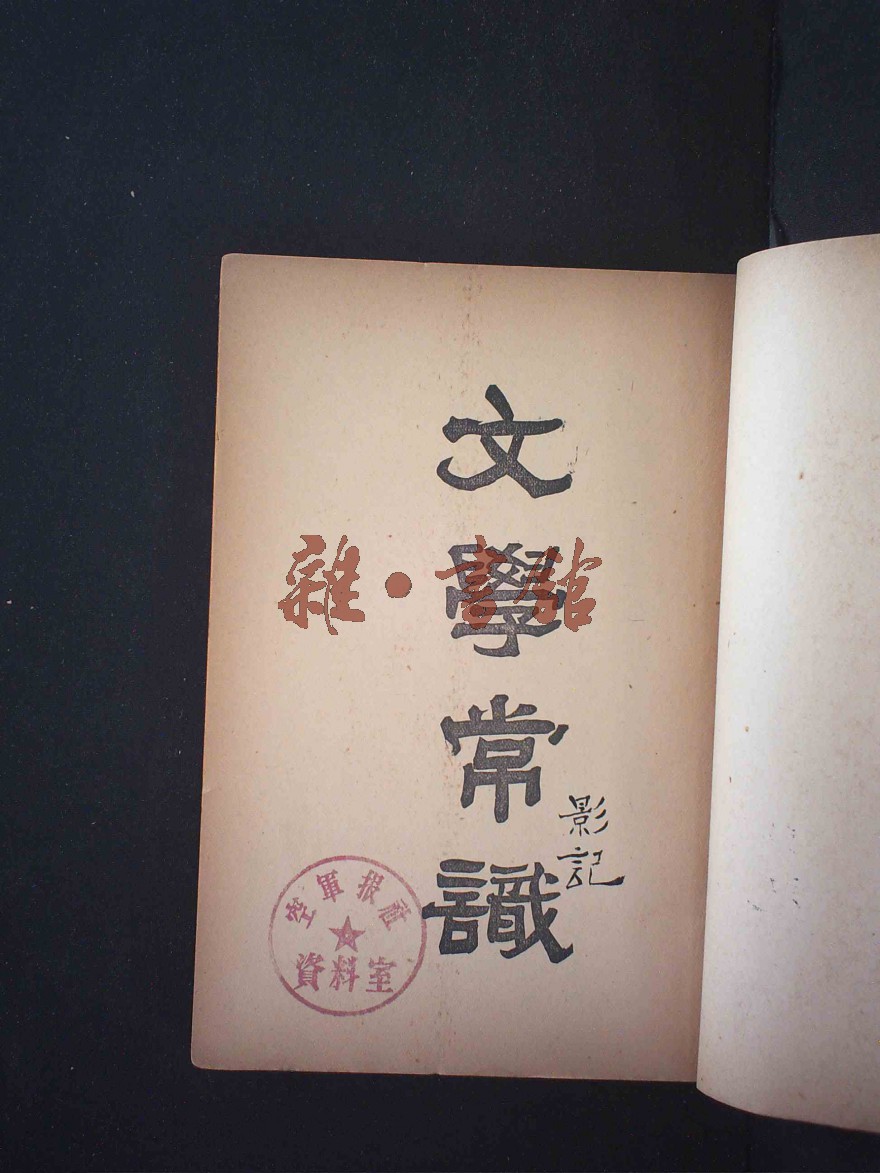 文學常識
影記
雜·書館
空軍报社
資料室